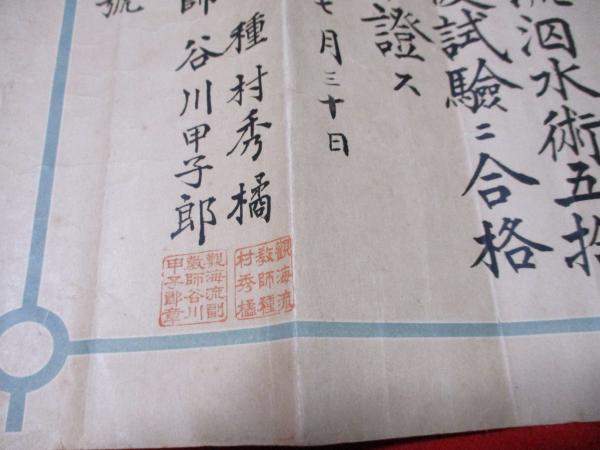 流泅水術五拾
試驗ニ合格
證ス
七月三十日
種村秀橘
師谷川甲子郎
號
觀海流
教師種
村秀橘
觀海流副
教師谷川
甲子郎章